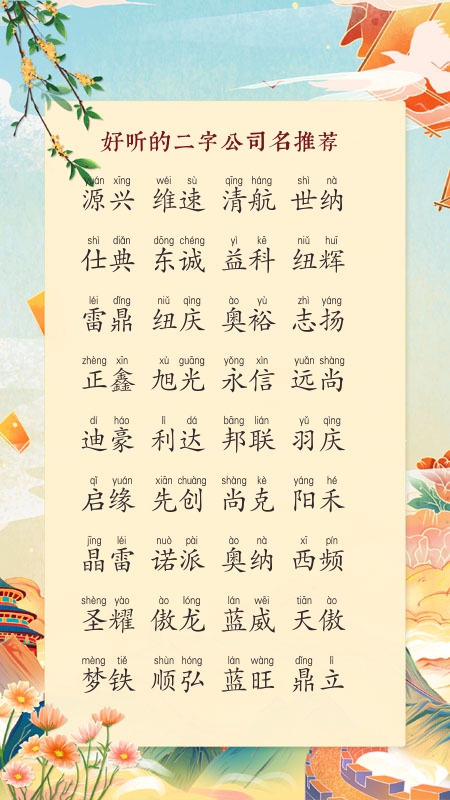 好听的二字公司名推荐
yuán xīng wéi sù qīng háng shì nà
源兴 维速 清航 世纳
shì diǎn dōng chéng yì kē niǔ huī
仕典 东诚 益科 纽辉
léi dǐng niǔ qìng ào yù zhì yáng
雷鼎 纽庆 奥裕 志扬
zhèng xīn xù guāng yǒng xìn yuǎn shàng
正鑫 旭光 永信 远尚
dí háo lì dá bāng lián yǔ qìng
迪豪 利达 邦联 羽庆
qǐ yuán xiān chuàng shàng kè yáng hé
启缘 先创 尚克 阳禾
jīng léi nuò pài ào nà xī pín
晶雷 诺派 奥纳 西频
shèng yào ào lóng lán wēi tiān ào
圣耀 傲龙 蓝威 天傲
mèng tiě shùn hóng lán wàng dǐng lì
梦铁 顺弘 蓝旺 鼎立